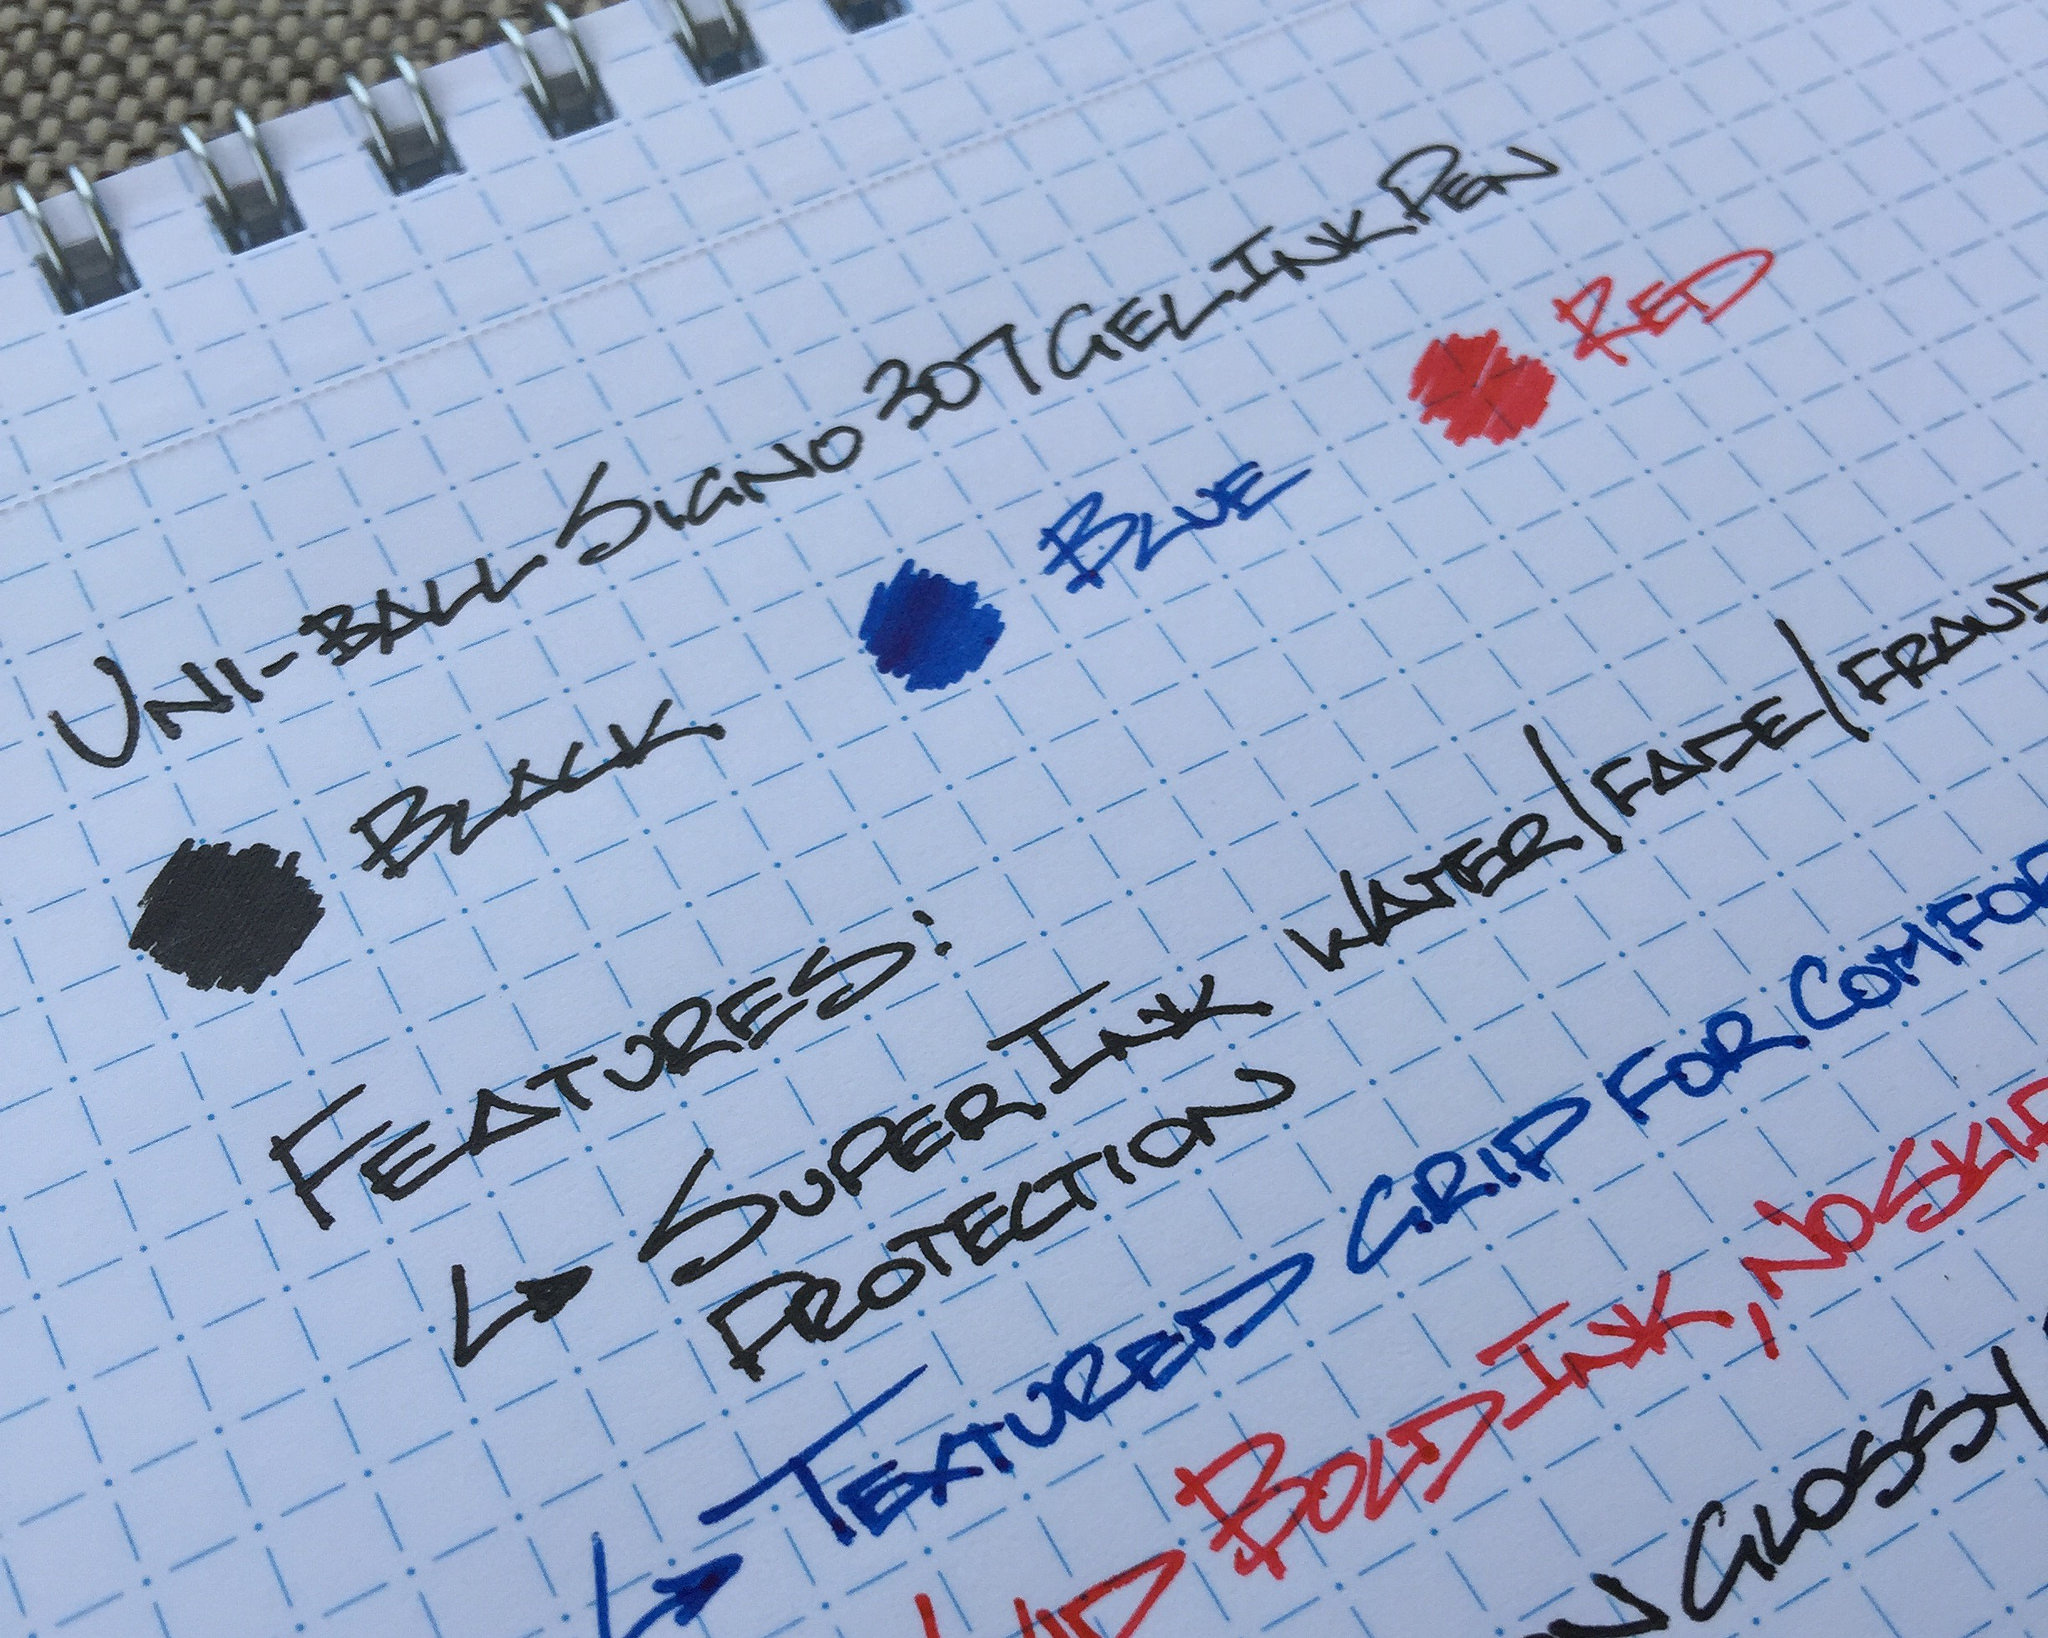 UNI-BALL SIGNO 307 GEL INK PEN
BLACK BLUE RED
FEATURES:
↳ SUPER INK WATER/FADE/FRAUD
PROTECTION
↳ TEXTURED GRIP FOR COMFOR
BOLD INK, NO SKIP
GLOSSY/